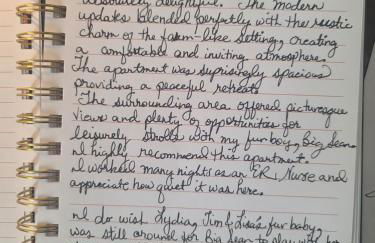 absolutely delightful. The modern
updates blended perfectly with the rustic
charm of the farm-like setting, creating
a comfortable and inviting atmosphere.
The apartment was suprisingly spacious
providing a peaceful retreat.
The surrounding area offered picturesque
views and plenty of opportunities for
leisurely strolls with my fur boy, Big Sean.
I highly recommend this apartment.
I worked many nights as an ER Nurse and
appreciate how quiet it was here.
I do wish Lydia, Tim & Lisa's fur baby,
was still around for Big Sean to play with